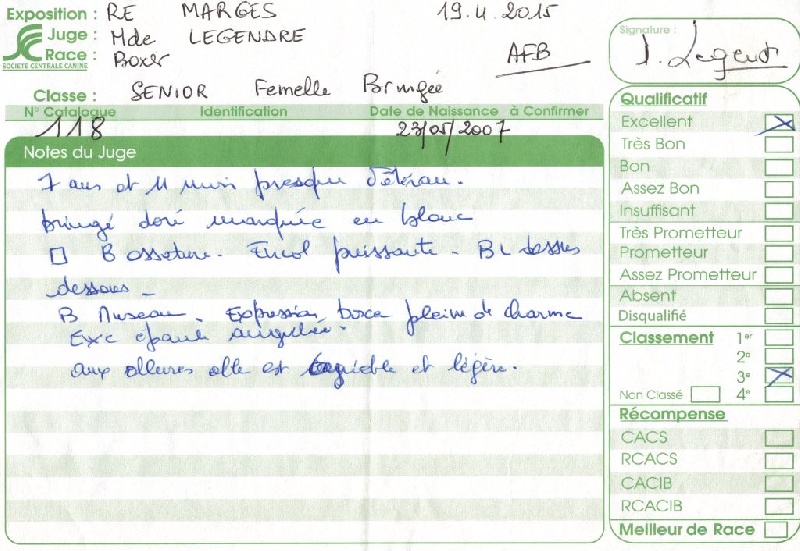 Exposition : RE MARGES 19.4.2015
Juge : Mde LEGENDRE
Race : Boxer AFB
SOCIETE CENTRALE CANINE
Classe : SENIOR Femelle Bringée
N° Catalogue Identification Date de Naissance à Confirmer
118 23/05/2007
Notes du Juge
7 ans et 11 mois presque
bringé doré marquée en blanc
□ B ossature. Encol puissante. BL dessus
dessous _
B Museau. Expression boxer pleine de charme
Exc épaule angulée.
aux allures elle est et légère.
Signature :
Qualificatif
Excellent X
Très Bon
Bon
Assez Bon
Insuffisant
Très Prometteur
Prometteur
Assez Prometteur
Absent
Disqualifié
Classement 1er
2e
3e X
Non Classé 4e
Récompense
CACS
RCACS
CACIB
RCACIB
Meilleur de Race